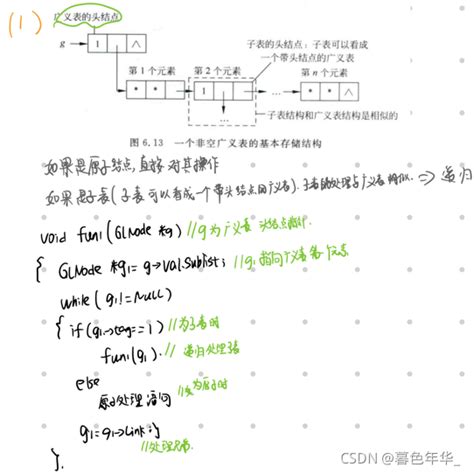 (1)
广义表的头结点
g
1
∧
子表的头结点：子表可以看成
一个带头结点的广义表
第 1 个元素
第 2 个元素
第 n 个元素
* *
1
…
* * ∧
…
子表结构和广义表结构是相似的
图 6.13 一个非空广义表的基本存储结构
如果是原子结点，直接对其操作
如果是子表（子表可以看成一个带头结点的广义表）．子表的处理与广义表相似． ⇒ 递归
void fun1(GLNode *g) //g为广义表头结点指针．
{ GLNode *g1 = g->val.sublist; //g1指向广义表各个元素
while (g1!=NULL)
{ if(g1->tag==1) //为子表时
fun1(g1). // 递归处理子表
else
原子处理语句 //为原子时
g1=g1->link;}
//处理兄弟．
}.
CSDN @暮色年华_